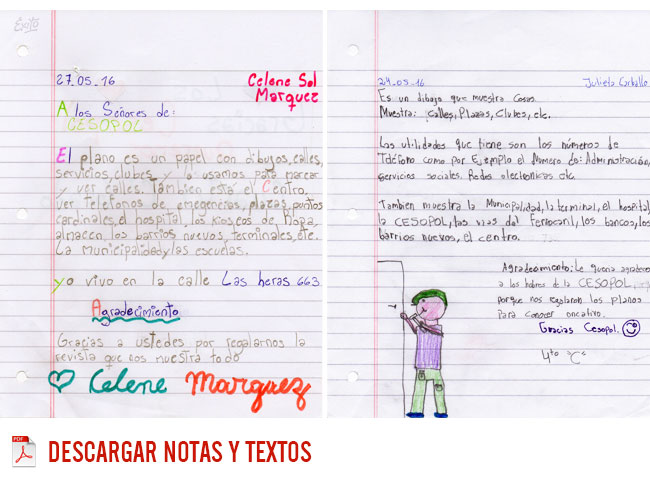 Exito
27.05.16
Celene Sol
Marquez
A los Señores de:
CESOPOL
El plano es un papel con dibujos, calles,
servicios, clubes y lo usamos para marcar
y ver calles. Tambien esta el Centro,
ver telefonos de emegencias, plazas, puntos
cardinales, el hospital, los kioscos de Ropa,
almacen los barrios nuevos, terminales, etc.
La municipalidad y las escuelas.
yo vivo en la calle Las heras 663
Agradecimiento
Gracias a ustedes por regalarnos la
revista que nos muestra todo
Celene Marquez
24.05.16
Julieta Carballo
Es un dibujo que muestra Cosas.
Muestra: calles, Plazas, Clubes, etc.
Las utilidades que tiene son los números de
Teléfono como por Ejemplo el Número de: Administración,
servicios sociales. Redes electronicas etc.
Tambien muestra la Municipalidad, la terminal, el hospital,
la CESOPOL, las vias del Ferrocaril, los bancos, los
barrios nuevos, el centro.
Agradecimiento: Le queria agradecer
a los hobres de la CESOPOL,
porque nos regalaron los planos
Para conocer oncativo.
Gracias Cesopol.
4to "C"
PDF
DESCARGAR NOTAS Y TEXTOS